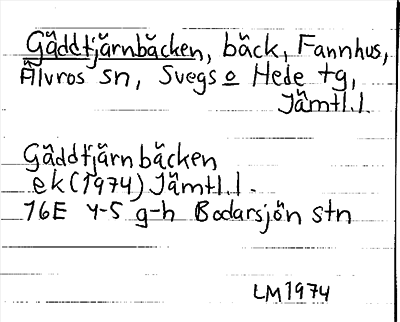 Gäddtjärnbäcken, bäck, Fannhus,
Älvros sn, Svegs o Hede tg,
Jämtl.l.
Gäddtjärnbäcken
ek (1974) Jämtl.l.
16E 4-5 g-h Bodarsjön stn
LM 1974